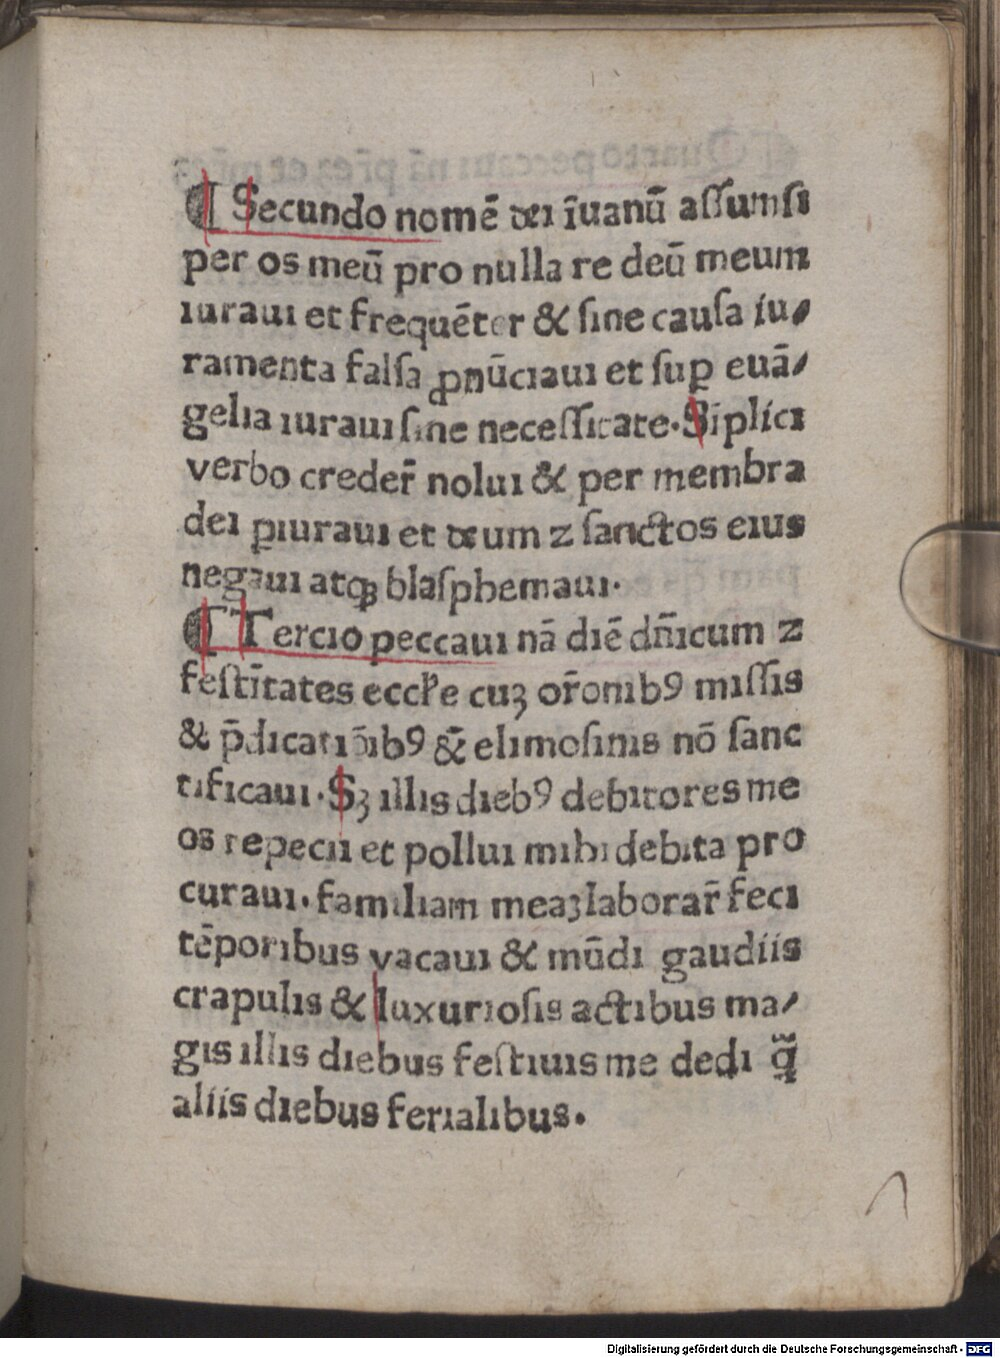 ¶ Secundo nomē dei īuanū aſſumſi
per os meū pro nulla re deū meum
iuraui et frequēter & ſine cauſa iu⸗
ramenta falſa ꝓnūciaui et ſuꝑ euā⸗
gelia iuraui ſine neceſſitate. Sīplici
verbo creder̄ nolui & per membra
dei ꝑiuraui et deum ⁊ ſanctos eius
negaui atqꝫ blaſphemaui.
¶ Tercio peccaui nā diē dn̄icum ⁊
feſtītates eccl̄e cuꝫ or̄onibꝰ miſſis
& p̄dicatiōibꝰ & elimoſinis nō ſanc
tificaui. Sꝫ illis diebꝰ debitores me
os repecii et pollui mihi debita pro
curaui. familiam meaꝫ laborar̄ feci
tēporibus vacaui & mūdi gaudiis
crapulis & luxurioſis actibus ma⸗
gis illis diebus feſtiuis me dedi q̄
aliis diebus ferialibus.
Digitalisierung gefördert durch die Deutsche Forschungsgemeinschaft - DFG